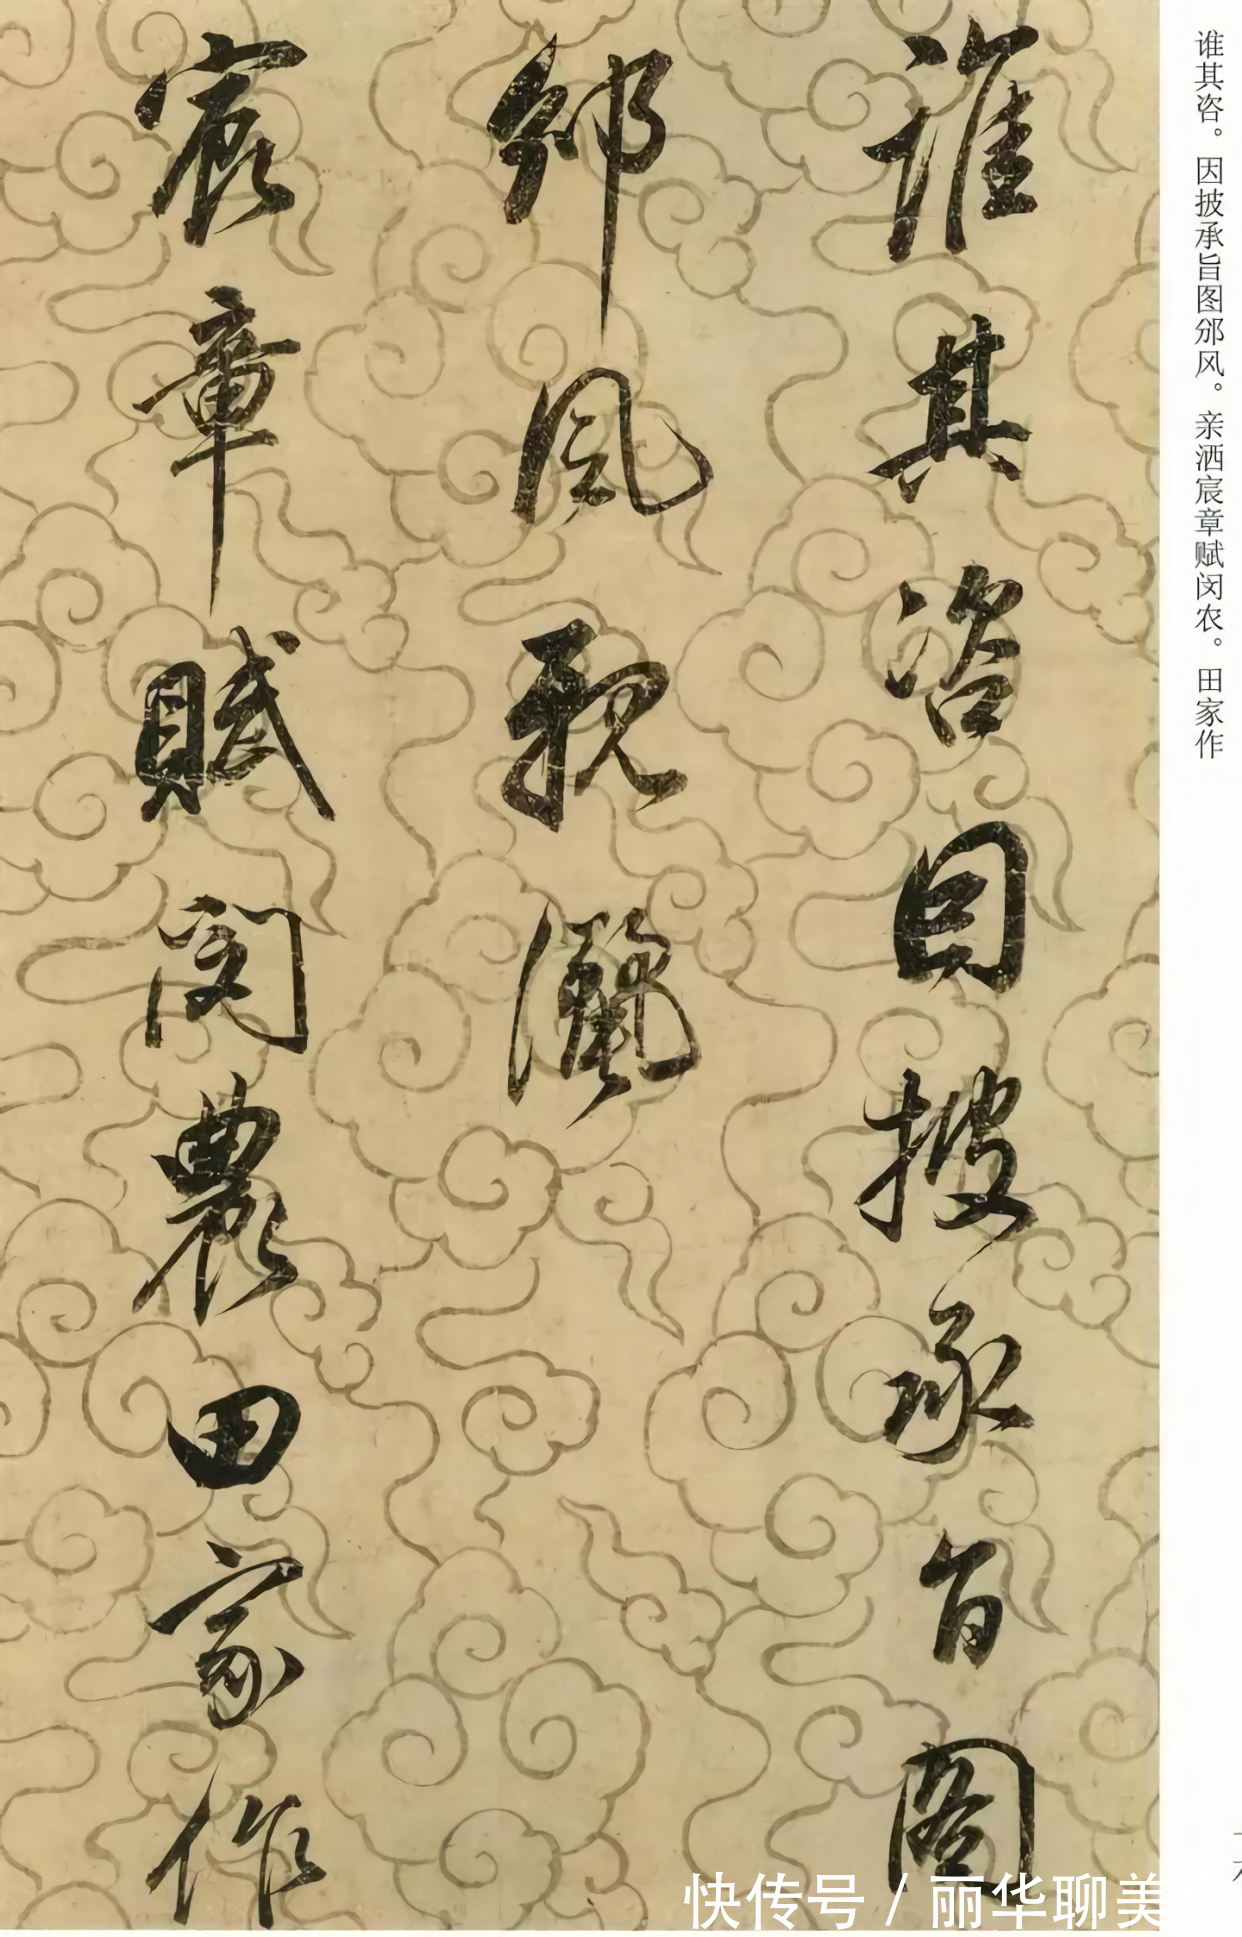 谁其咨。因披承旨图邠风。亲洒宸章赋闵农。田家作
誰其咨因披承旨圖
邠風親灑
宸章賦閔農田家作
快传号 / 丽华聊美食